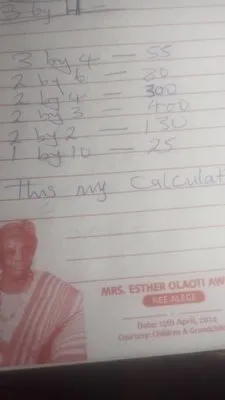 3 by 4 — 55
2 by 6 — 20
2 by 4 — 300
2 by 3 — 400
2 by 2 — 130
1 by 10 — 25
This my Calculat
MRS. ESTHER OLAOTI AW
NEE ALEGE
Date: 12th April, 2024
Courtesy: Children & Grandchild